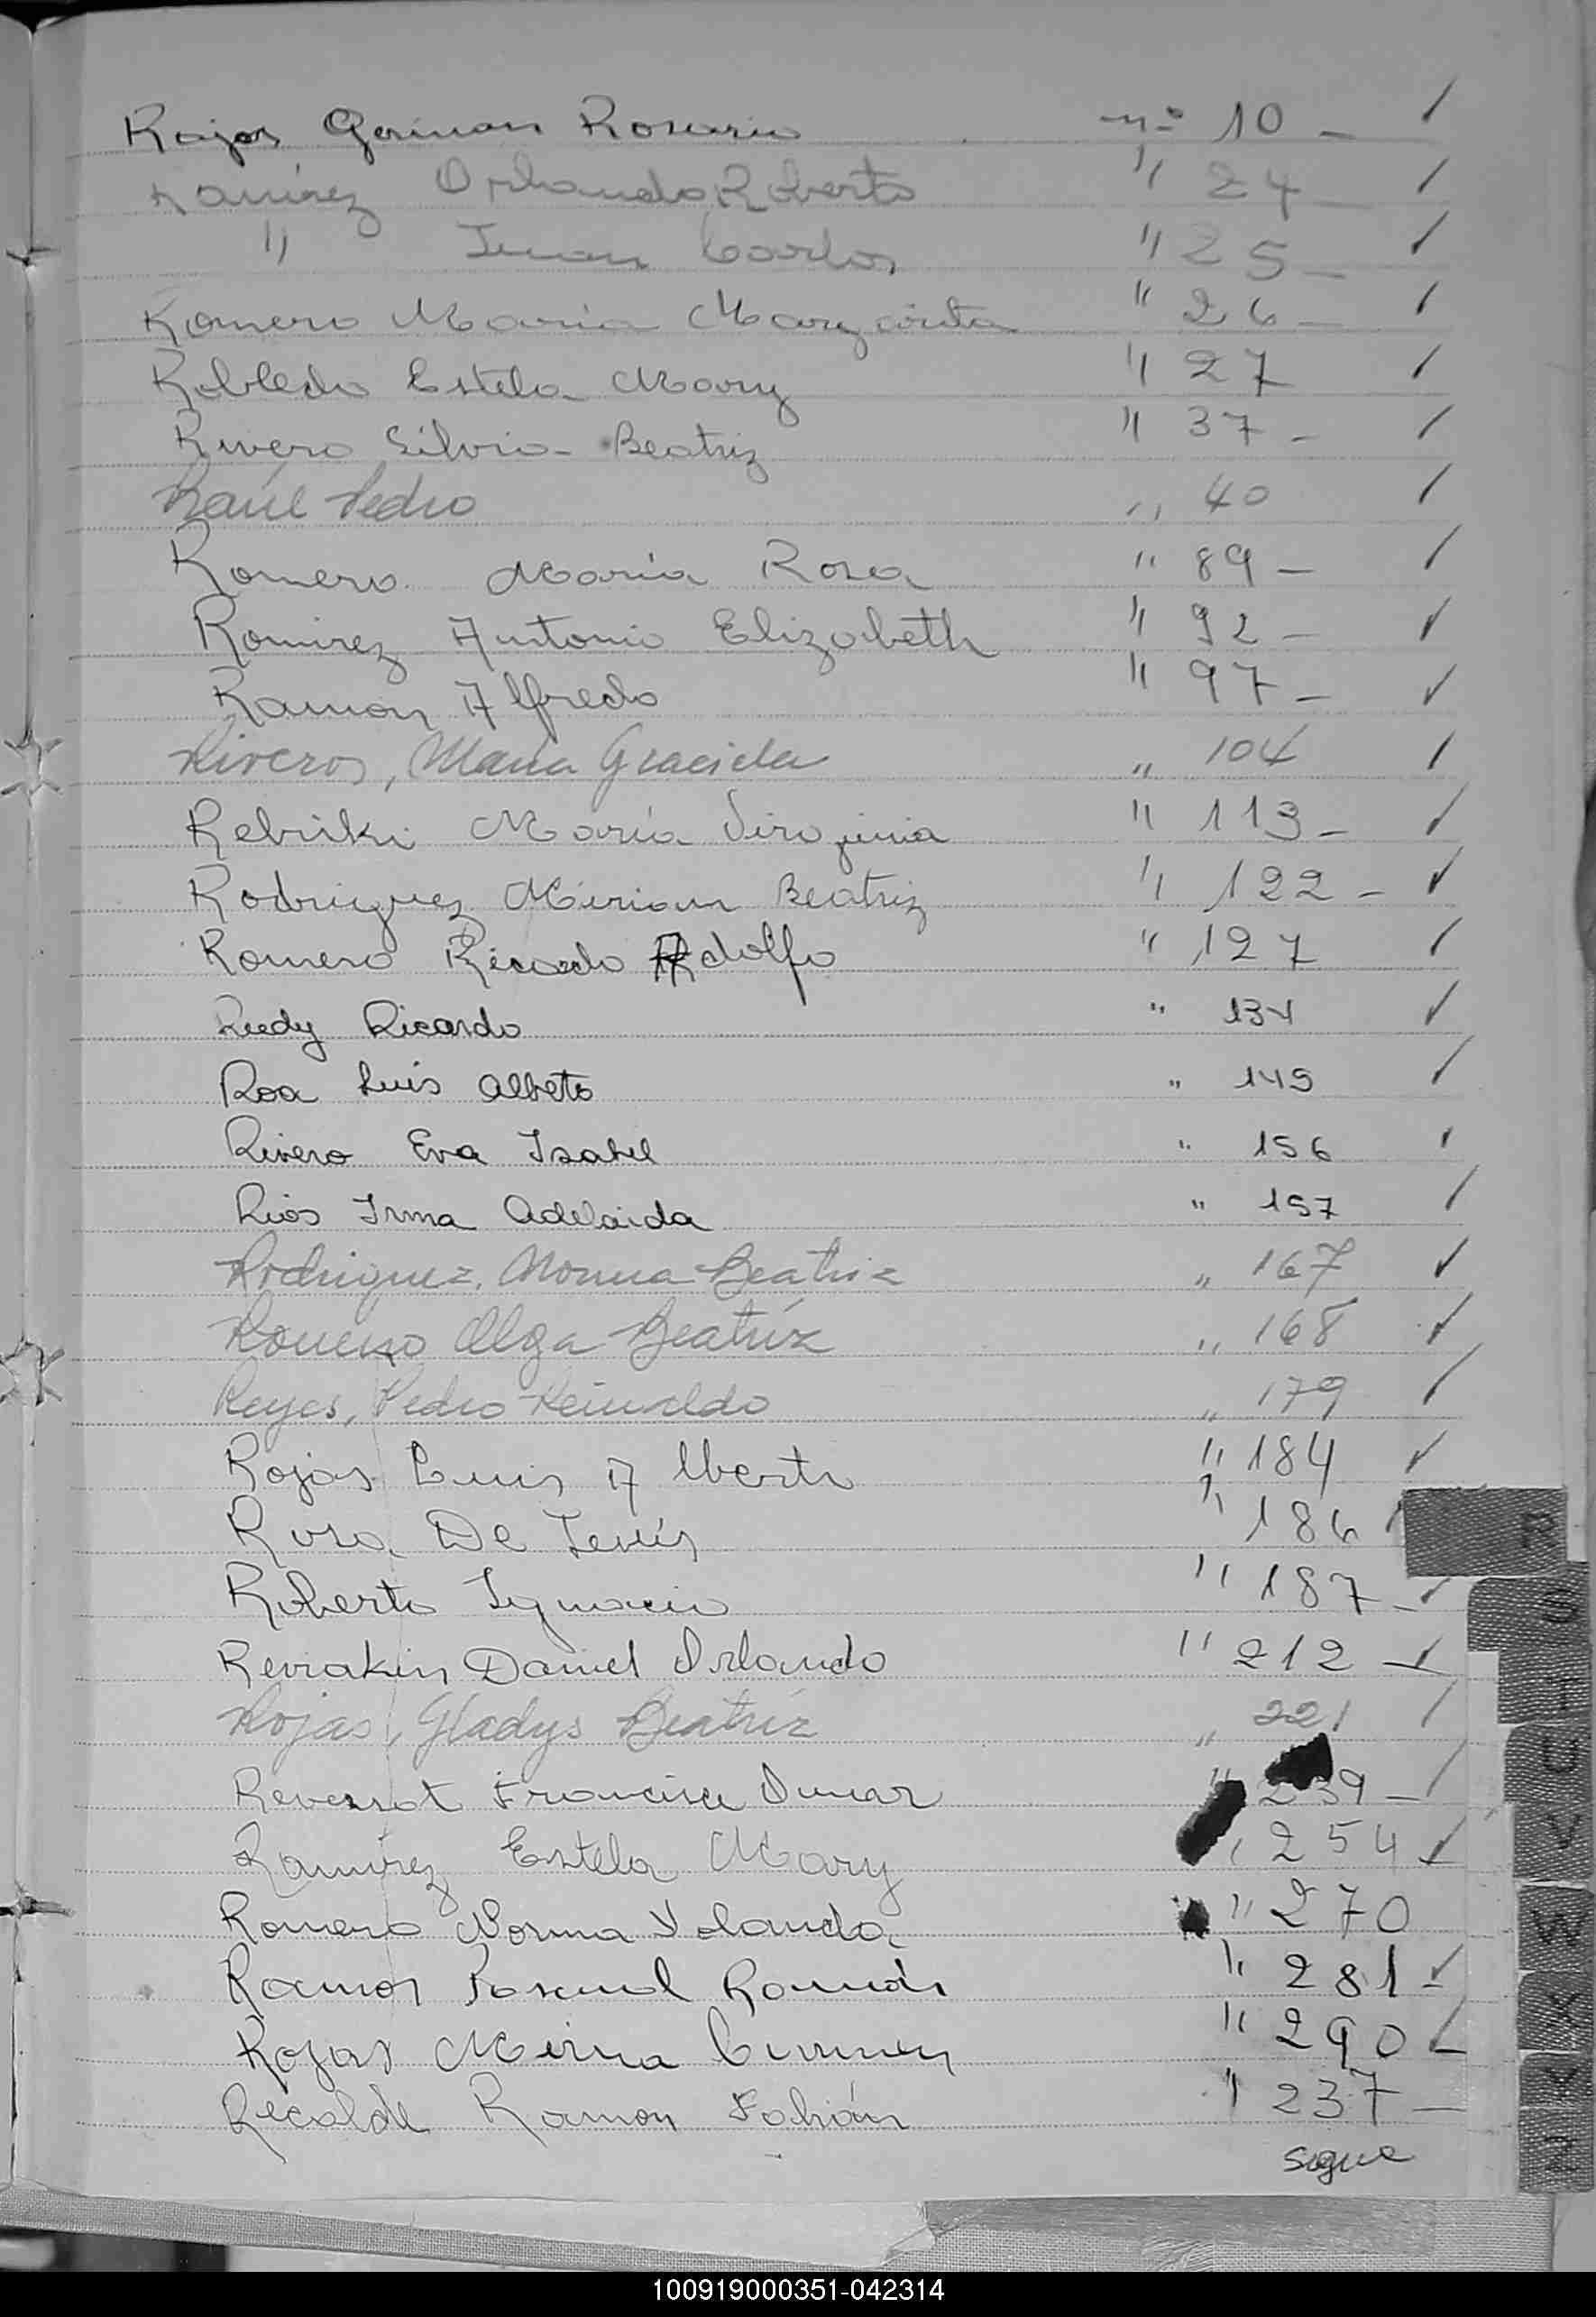 Rojas German Rosario nº 10 -
Ramirez Orlando Roberto " 24 -
" Juan Carlos " 25 -
Romero Maria Margarita " 26 -
Robledo Estela Mary " 27
Rivero Silvia Beatriz " 37 -
Raúl Pedro " 40
Romero María Rosa " 89 -
Ramirez Antonia Elizabeth " 92 -
Ramon Alfredo " 97 -
Riveros, María Graciela " 104
Rebriki María Virginia " 113 -
Rodriguez Miriam Beatriz " 122 -
Romero Ricardo Adolfo " 127
Ricardo " 134
Roa Luis Alberto " 145
Rivero Eva Isabel " 156
Rios Irma Adelaida " 157
Rodriguez, Norma Beatriz " 167
Romero Olga Beatríz " 168
Reyes, Pedro Reinaldo " 179
Rojas Luis Alberto " 184
Rosa De Jesús " 186
Roberto Ignacio " 187 -
Reviakin Daniel Orlando " 212 -
Rojas, Gladys Beatríz " 221
Francisco Omar " 239 -
Ramírez Estela Mary " 254
Romero Norma Yolanda " 270
Ramos Pascual Román " 281 -
Rojas Mirna Carmen " 290
Recalde Ramon Fabián " 237 -
sigue
R
S
T
U
V
W
X
Y
Z
100919000351-042314